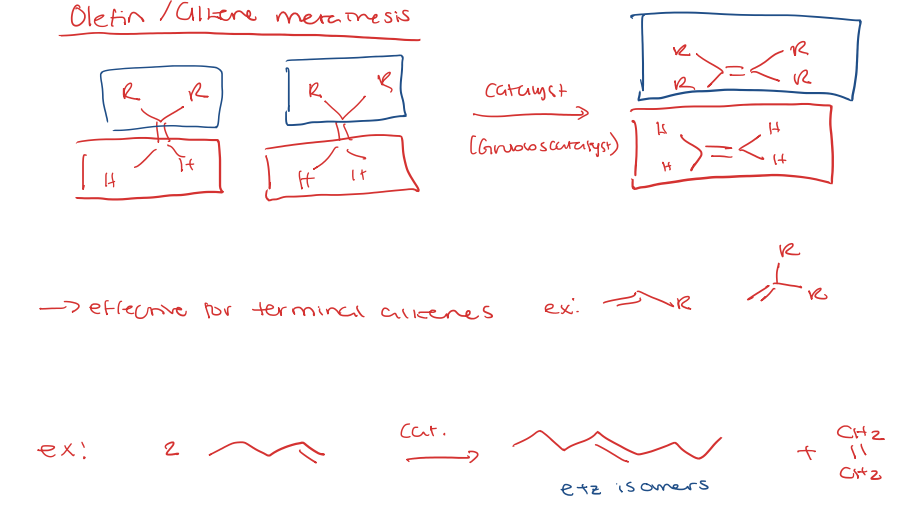 Olefin / alkene metathesis
R R R R catalyst R R
R R
H H H H (Grubbs catalyst) H H
H H
R
→ effective for terminal alkenes ex: R R
ex: 2 cat. + CH2
CH2
e+z isomers